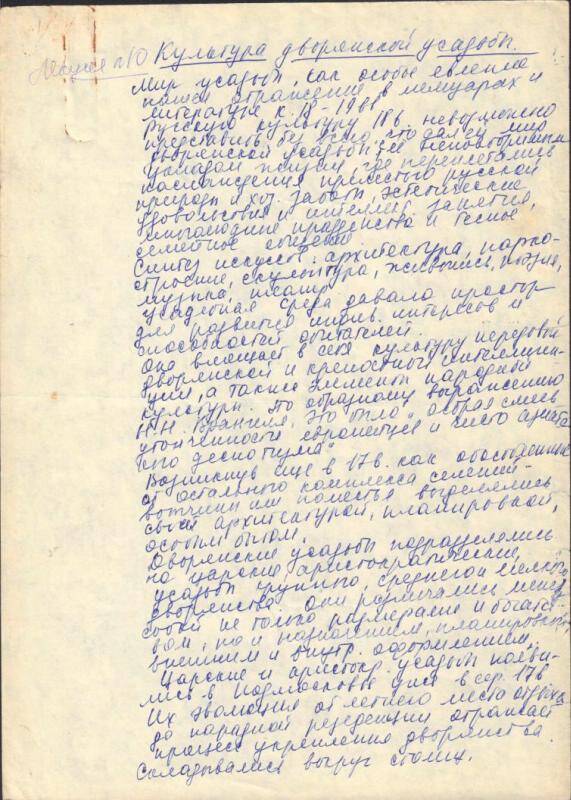 Лекция №10 Культура дворянской усадьбы.
Мир усадьбы, как особое явление
нашел отражение в мемуарах и
литературе к. 18 - 19 вв
Русскую культуру 18 в. невозможно
представить без
дворянской усадьбы с ее неповторимым
укладом жизни, где переплетались
наслаждения прелестью русской
природы и хоз. заботы, эстетические
удовольствия и интеллект. занятия,
многолюдные празднества и тесное
семейное общение
Синтез искусств: архитектура, парко-
строение, скульптура, живопись, поэзия,
музыка, театр
Усадебная среда давала простор
для развития интересов и
способностей обитателей.
Она вмещает в себя культуру передовой
дворянской и крепостной интеллиген-
ции, а также элементы народной
культуры. По образному выражению
Н.Н. Врангеля, это было "особая смесь
утонченности европейцев и чисто азиатс-
кого деспотизма"
Возникнув еще в 17 в. как обособленные
от остального комплекса селений
вотчины или поместья выделялись
своей архитектурой, планировкой,
особым бытом.
Дворянские усадьбы подразделялись
на царские, аристократические,
усадьбы крупного, среднего и мелкого
дворянства. Они различались между
собой не только размерами и богатст-
вом, но и назначением, планировкой,
внешним и внутр. оформлением.
Царские и аристокр. усадьбы появи-
лись в Подмосковье уже в сер. 17 в
Их эволюция от летнего место отдыха
до парадной резиденции отражает
процесс укрепления дворянства.
Складывались вокруг столиц.